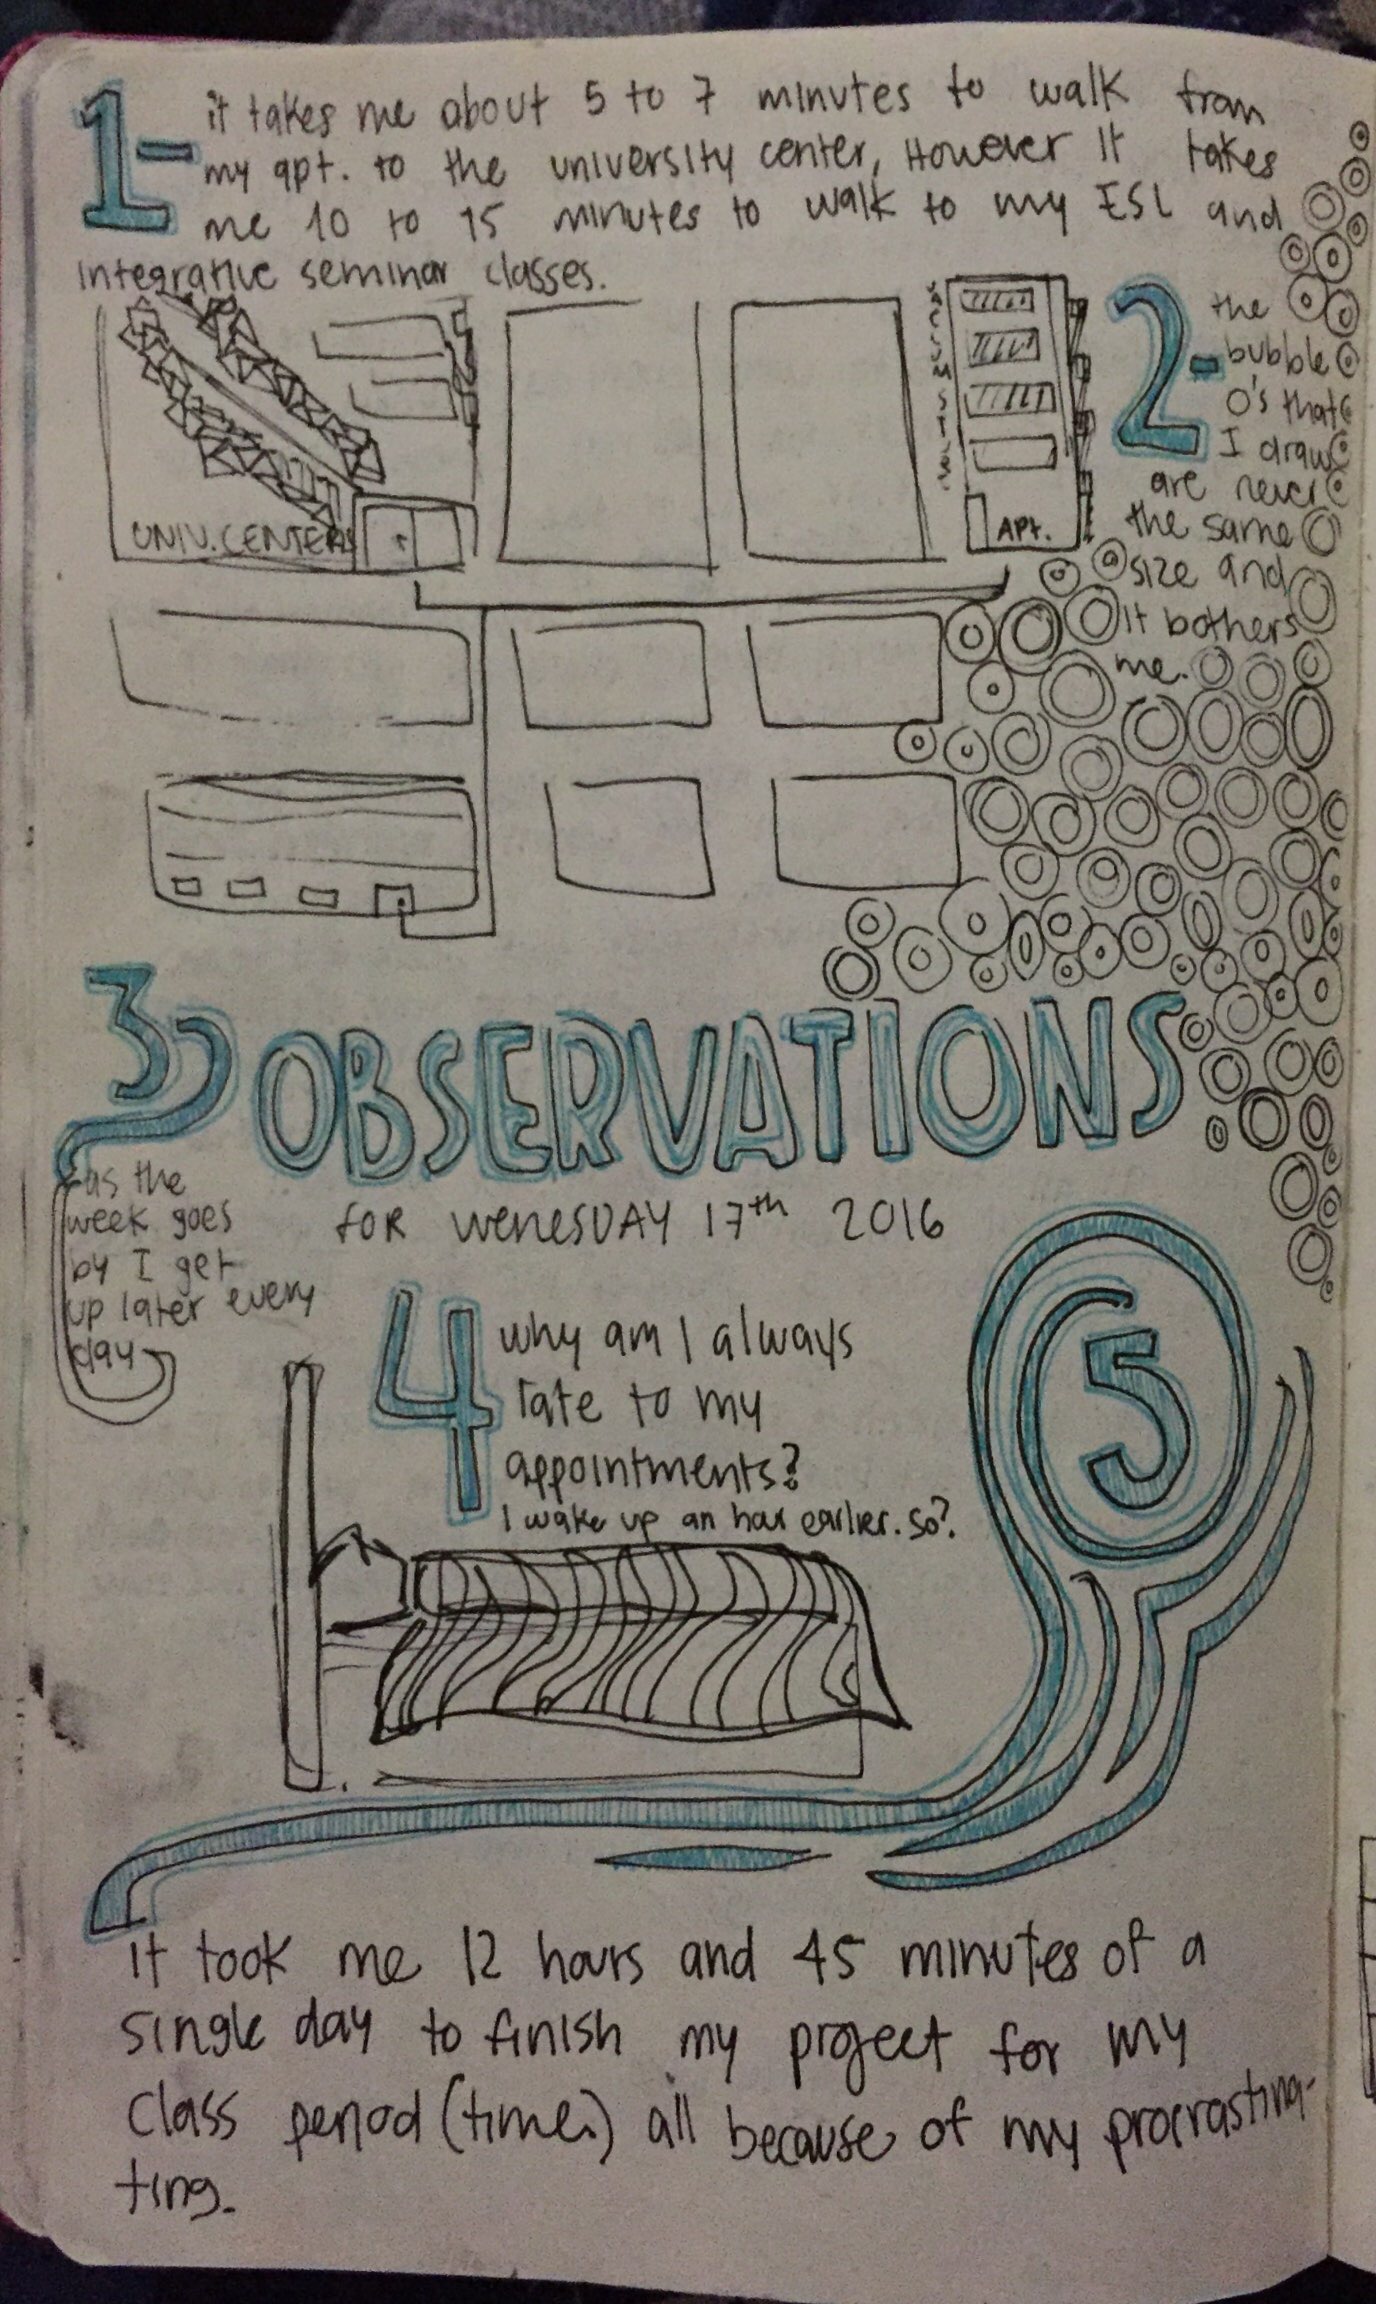 1- it takes me about 5 to 7 minutes to walk from
my apt. to the university center, However it takes
me 10 to 15 minutes to walk to my ESL and
integrative seminar classes.
UNIV. CENTER
APT.
2- the
bubble
O's that
I draw
are never
the same
size and
it bothers
me.
OBSERVATIONS
for WENESDAY 17th 2016
3
-as the
week goes
by I get
up later every
day
4 why am I always
late to my
appointments?
I wake up an hour earlier. So?
5
It took me 12 hours and 45 minutes of a
single day to finish my project for my
class period (time) all because of my procrastina-
ting.